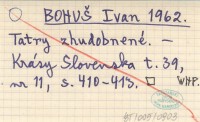 BOHUŠ Ivan 1962.
Tatry zhudobnené. -
Krásy Slovenska t. 39,
nr 11, s. 410-413. □ WHP.